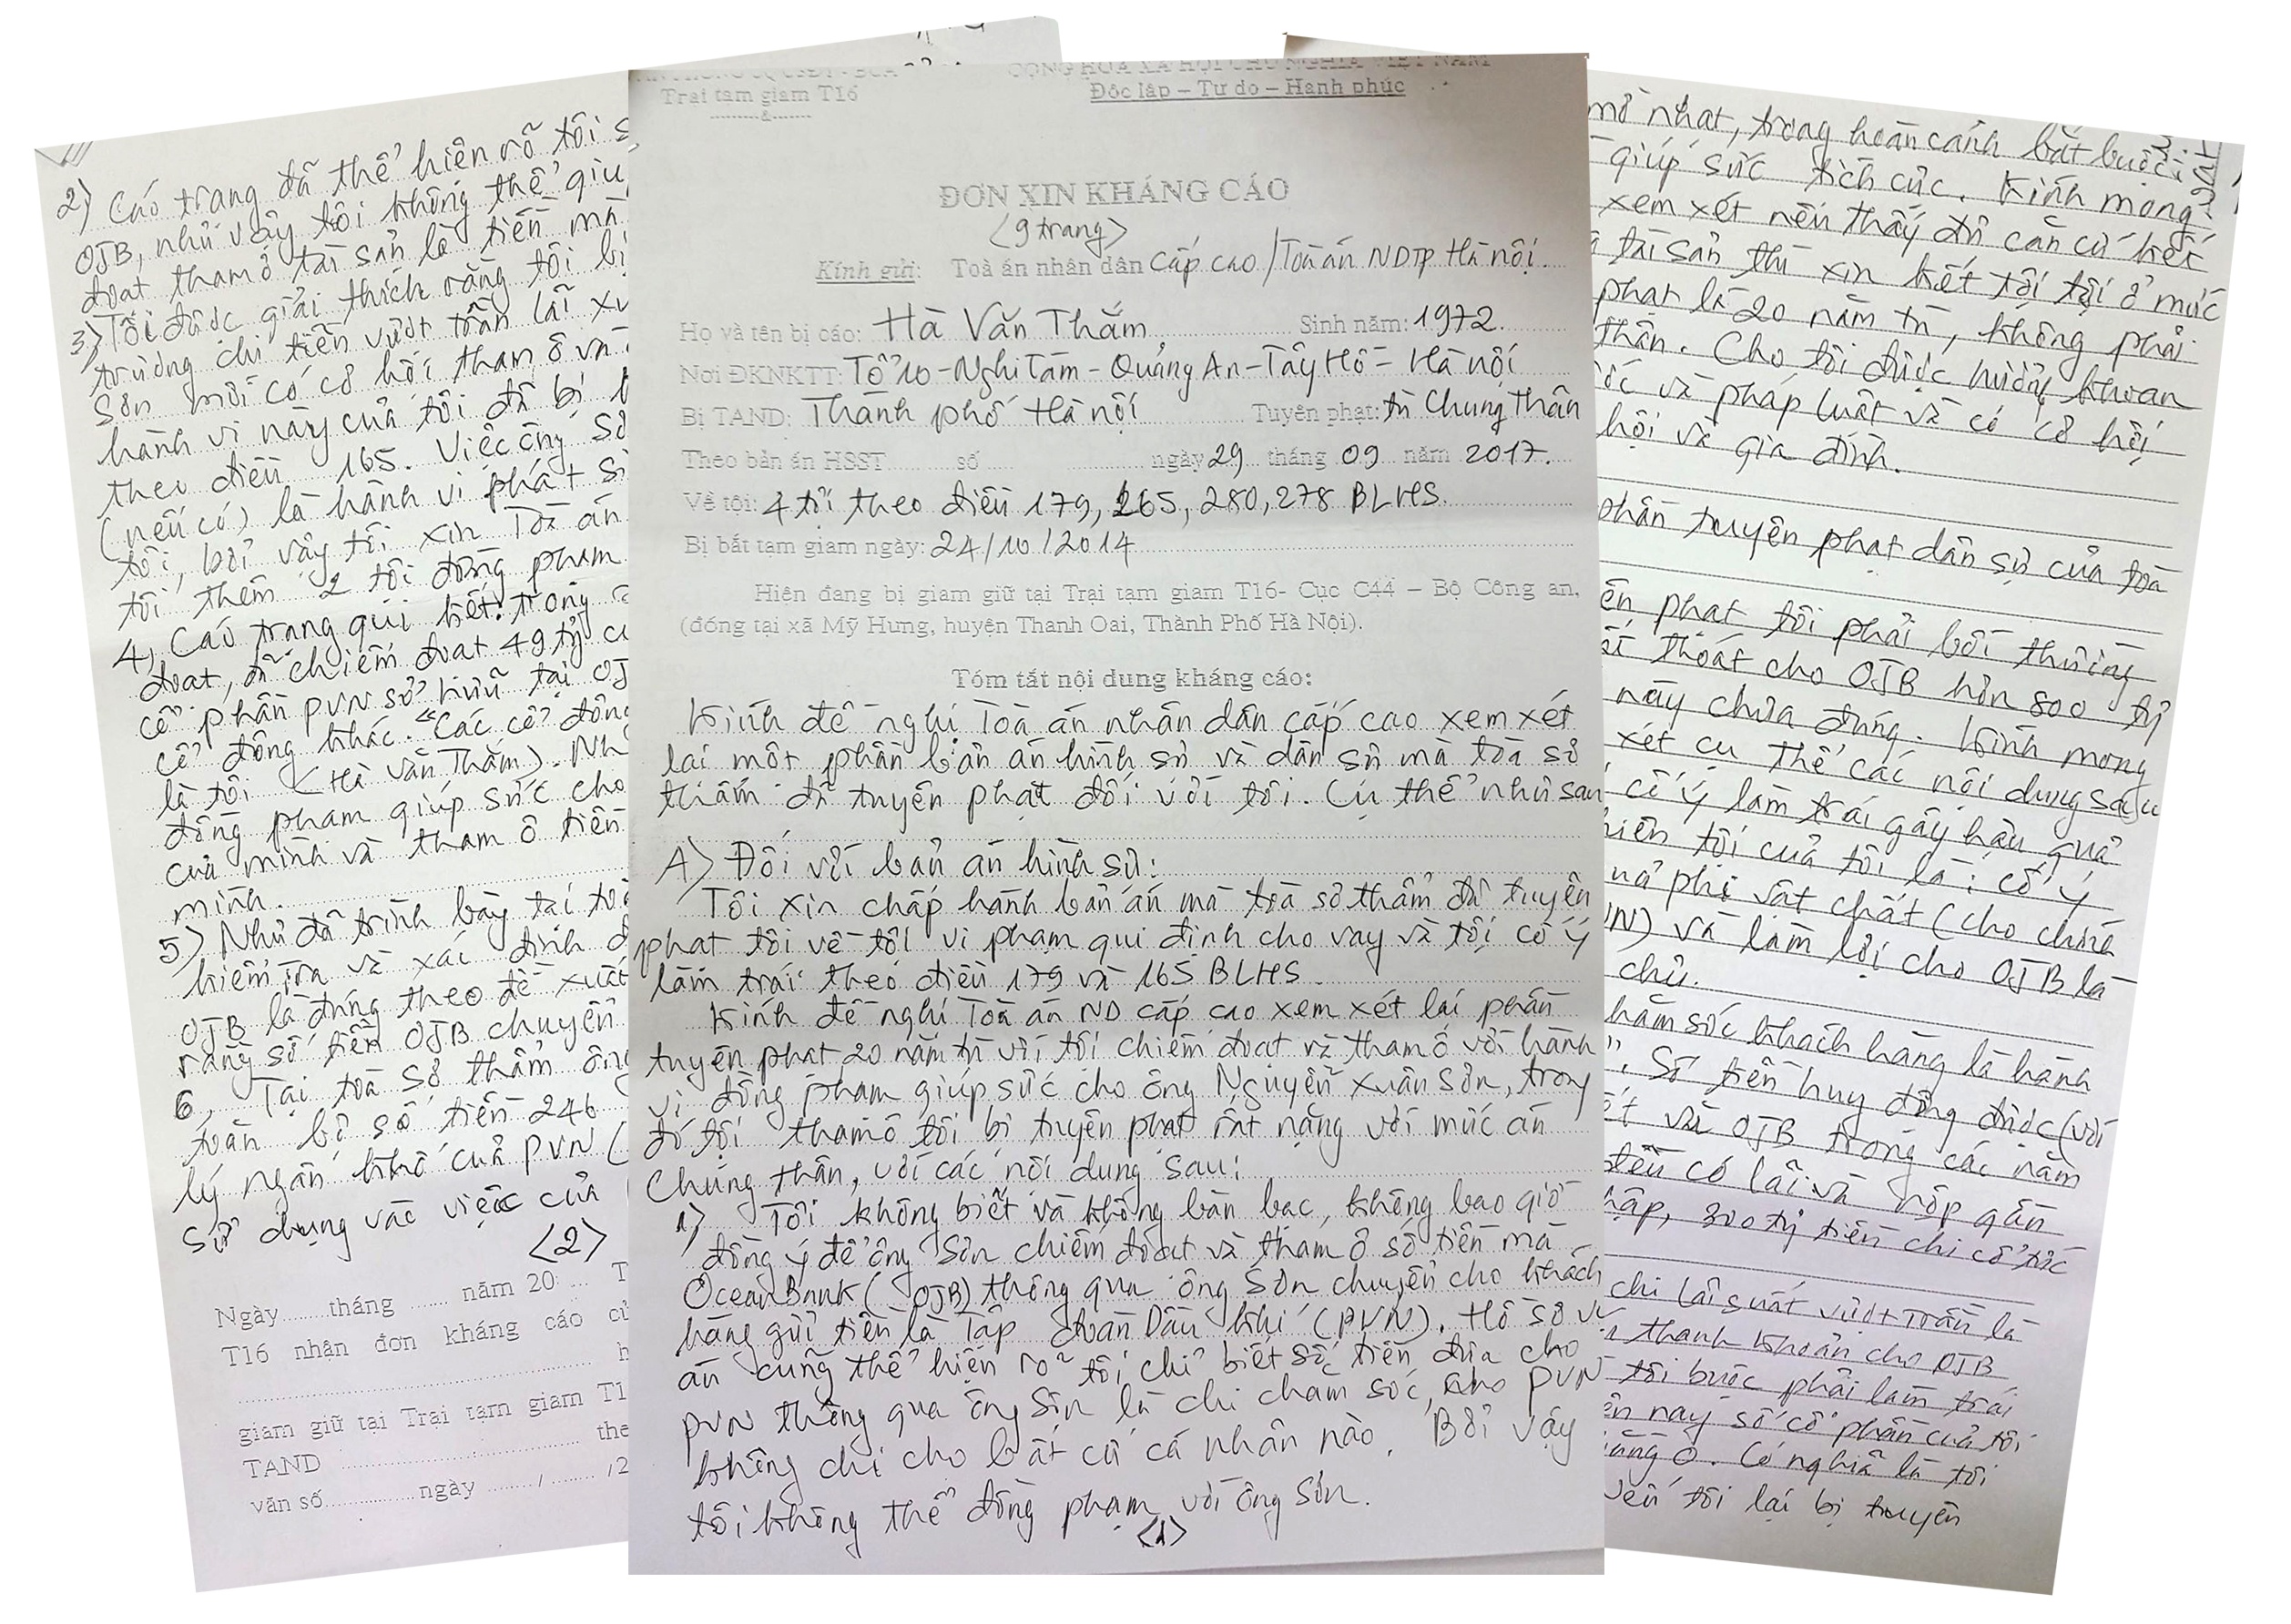 2) Cáo trạng đã thể hiện rõ tôi
OJB, như vậy tôi không thể giú
đoạt tham ô tài sản là tiền mà
3) Tôi được giải thích rằng tôi bị
trương chi tiền vượt trần lãi xu
Sơn mới có cơ hội tham ô và
hành vi này của tôi đã bị
theo điều 165. Việc ông Sơ
(nếu có) là hành vi phát si
tôi, bởi vậy tôi xin Toà án
tôi thêm 2 tội đồng phạm
4, Cáo trạng qui kết: trong
đoạt, đã chiếm đoạt 49 tỷ củ
cổ phần PVN sở hữu tại OJ
cổ đông khác. "Các cổ đông
là tôi (Hà Văn Thắm). Nh
đồng phạm giúp sức cho
của mình và tham ô tiền
mình.
5) Như đã trình bày tại toà
kiểm tra và xác định
OJB là đúng theo đề xuất
rằng số tiền OJB chuyển
6, Tại toà sơ thẩm ông
toàn bộ số tiền 246
lý ngân khố của PVN (
sử dụng vào việc của
<2>
Ngày ...... tháng ...... năm 20 ... T
T16 nhận đơn kháng cáo củ
h
giam giữ tại Trại tạm giam T1
TAND ...... the
văn số ...... ngày ...... / ...... /2
CỘNG HOÀ XÃ HỘI CHỦ NGHĨA VIỆT NAM
Trại tạm giam T16
Độc lập – Tự do – Hạnh phúc
--------&-------
ĐƠN XIN KHÁNG CÁO
<9 trang>
Kính gửi: Toà án nhân dân Cấp cao / Toà án NDTP Hà nội.
Họ và tên bị cáo: Hà Văn Thắm Sinh năm: 1972.
Nơi ĐKNKTT: Tổ 10 - Nghi Tàm - Quảng An - Tây Hồ - Hà nội
Bị TAND: Thành phố Hà nội Tuyên phạt: tù Chung thân
Theo bản án HSST ...... số ...... ngày 29 tháng 09 năm 2017.
Về tội: 4 tội theo điều 179, 165, 280, 278 BLHS.
Bị bắt tạm giam ngày: 24/10/2014
Hiện đang bị giam giữ tại Trại tạm giam T16- Cục C44 – Bộ Công an,
(đóng tại xã Mỹ Hưng, huyện Thanh Oai, Thành Phố Hà Nội).
Tóm tắt nội dung kháng cáo:
Kính đề nghị Toà án nhân dân cấp cao xem xét
lại một phần bản án hình sự và dân sự mà toà sơ
thẩm đã tuyên phạt đối với tôi. Cụ thể như sau
A) Đối với bản án hình sự:
Tôi xin chấp hành bản án mà toà sơ thẩm đã tuyên
phạt tôi về tội vi phạm qui định cho vay và tội cố ý
làm trái theo điều 179 và 165 BLHS.
Kính đề nghị Toà án ND cấp cao xem xét lại phần
tuyên phạt 20 năm tù với tội chiếm đoạt và tham ô với hành
vi đồng phạm giúp sức cho ông Nguyễn Xuân Sơn, trong
đó tội tham ô tôi bị tuyên phạt rất nặng với mức án
Chung thân, với các nội dung sau:
1) Tôi không biết và không bàn bạc, không bao giờ
đồng ý để ông Sơn chiếm đoạt và tham ô số tiền mà
OceanBank (OJB) thông qua ông Sơn chuyển cho khách
hàng gửi tiền là Tập đoàn Dầu khí (PVN). Hồ sơ vụ
án cũng thể hiện rõ tôi chỉ biết số tiền đưa cho
PVN thông qua ông Sơn là chi chăm sóc cho PVN
không chi cho bất cứ cá nhân nào. Bởi vậy
tôi không thể đồng phạm với ông Sơn.
<1>
mờ nhạt, trong hoàn cảnh bắt buộc
giúp sức tích cực. Kính mong
xem xét nếu thấy đủ căn cứ kết
tài sản thì xin kết tội tôi ở mức
phạt là 20 năm tù, không phải
thân. Cho tôi được hưởng khoan
và pháp luật và có cơ hội
hội và gia đình.
phần tuyên phạt dân sự của toà
phạt tôi phải bồi thường
thoát cho OJB hơn 800 tỷ
này chưa đúng. Kính mong
xét cụ thể các nội dung sau
cố ý làm trái gây hậu quả
tội của tôi là: cố ý
phi vật chất (cho chính
và làm lợi cho OJB là
chủ.
chăm sóc khách hàng là hành
". Số tiền huy động được (với
và OJB trong các năm
đều có lãi và nộp gần
800 tỷ tiền chi cổ tức
chi lãi suất vượt trần là
thanh khoản cho OJB
tôi buộc phải làm trái
nay số cổ phần của tôi
bằng 0. Có nghĩa là tôi
tôi lại bị truyên